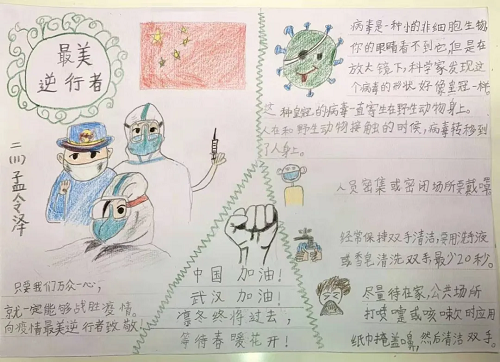 最美
逆行者
二(1)孟令泽
只要我们万众一心,
就一定能够战胜疫情。
向疫情最美逆行者致敬!
中国加油!
武汉加油!
凛冬终将过去,
等待春暖花开!
病毒是一种小的非细胞生物
你的眼睛看不到它,但是在
放大镜下,科学家发现这
个病毒的形状好像皇冠一样
这种皇冠的病毒一直寄生在野生动物身上。
人在和野生动物接触的时候,病毒转移到
了人身上。
人员密集或密闭场所要戴
经常保持双手清洁,要用洗手液
或香皂清洗双手最少20秒。
尽量待在家,公共场所
打喷嚏或咳嗽次时应用
纸巾掩盖鼻,然后清洁双手。